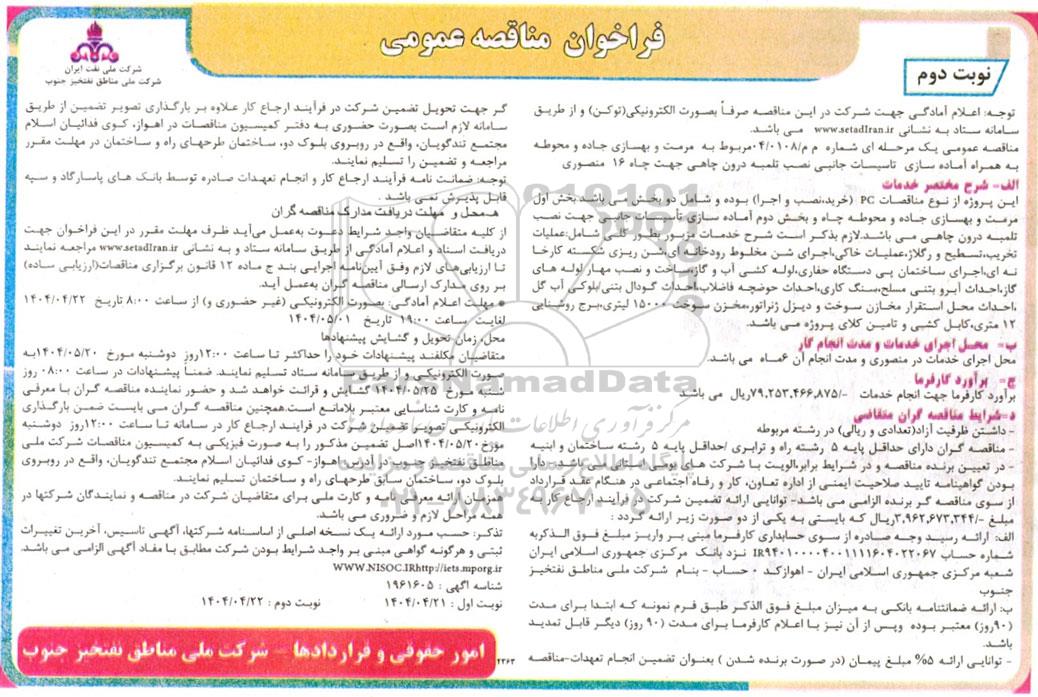 فراخوان مناقصه عمومی
نوبت دوم
شرکت ملی نفت ایران
شرکت ملی مناطق نفتخیز جنوب
توجه: اعلام آمادگی جهت شرکت در این مناقصه صرفاً بصورت الکترونیکی(توکن) و از طریق
سامانه ستاد به نشانی www.setadIran.ir می باشد.
مناقصه عمومی یک مرحله ای شماره م م/۰۴/۰۱۰۸مربوط به مرمت و بهسازی جاده و محوطه
به همراه آماده سازی تاسیسات جانبی نصب تلمبه درون چاهی جهت چاه ۱۶ منصوری
الف- شرح مختصر خدمات
این پروژه از نوع مناقصات PC (خرید،نصب و اجرا) بوده و شامل دو بخش می باشد:بخش اول
مرمت و بهسازی جاده و محوطه چاه و بخش دوم آماده سازی تأسیسات جانبی جهت نصب
تلمبه درون چاهی می باشد.لازم بذکر است شرح خدمات مزبور بطور کلی شامل:عملیات
تخریب،تسطیح و رگلاژ،عملیات خاکی،اجرای شن مخلوط رودخانه ای،شن ریزی شکسته کارخا
نه ای،اجرای ساختمان پی دستگاه حفاری،لوله کشی آب و گاز،ساخت و نصب مهار لوله های
گاز،احداث آبرو بتنی مسلح،سنگ کاری،احداث حوضچه فاضلاب،احداث گودال بتنی/بلوکی آب گل
،احداث محل استقرار مخازن سوخت و دیزل ژنراتور،مخزن سوخت ۱۵۰۰۰ لیتری،برج روشنایی
۱۲ متری،کابل کشی و تامین کلای پروژه می باشد.
ب- محل اجرای خدمات و مدت انجام کار
محل اجرای خدمات در منصوری و مدت انجام آن ۶ماه می باشد.
ج- برآورد کارفرما
برآورد کارفرما جهت انجام خدمات -/۷۹،۲۵۳،۴۶۶،۸۷۵ریال می باشد
د-شرایط مناقصه گران متقاضی
- داشتن ظرفیت آزاد(تعدادی و ریالی) در رشته مربوطه
- مناقصه گران دارای حداقل پایه ۵ رشته راه و ترابری /حداقل پایه ۵ رشته ساختمان و ابنیه
- در تعیین برنده مناقصه و در شرایط برابر،الویت با شرکت های بومی استانی می باشد.- دارا
بودن گواهینامه تایید صلاحیت ایمنی از اداره تعاون، کار و رفاه اجتماعی در هنگام عقد قرارداد
از سوی مناقصه گر برنده الزامی می باشد- توانایی ارائه تضمین شرکت در فرآیند ارجاع کار به
مبلغ -/۳،۹۶۲،۶۷۳،۳۴۴ریال که بایستی به یکی از دو صورت زیر ارائه گردد :
الف: ارائه رسید وجه صادره از سوی حسابداری کارفرما مبنی بر واریز مبلغ فوق الذکربه
شماره حساب IR۹۴۰۱۰۰۰۰۴۰۰۱۱۱۱۶۰۴۰۲۲۰۶۷ نزد بانک مرکزی جمهوری اسلامی ایران
شعبه مرکزی جمهوری اسلامی ایران - اهوازکد ۰ حساب - بنام شرکت ملی مناطق نفتخیز
جنوب
ب: ارائه ضمانتنامه بانکی به میزان مبلغ فوق الذکر طبق فرم نمونه که ابتدا برای مدت
(۹۰روز) معتبر بوده وپس از آن نیز با اعلام کارفرما برای مدت (۹۰ روز) دیگر قابل تمدید
باشد.
- توانایی ارائه ۵% مبلغ پیمان (در صورت برنده شدن ) بعنوان تضمین انجام تعهدات-مناقصه
گر جهت تحویل تضمین شرکت در فرآیند ارجاع کار علاوه بر بارگذاری تصویر تضمین از طریق
سامانه لازم است بصورت حضوری به دفتر کمیسیون مناقصات در اهواز، کوی فدائیان اسلام
مجتمع تندگویان، واقع در روبروی بلوک دو، ساختمان طرحهای راه و ساختمان در مهلت مقرر
مراجعه و تضمین را تسلیم نمایند.
توجه: ضمانت نامه فرآیند ارجاع کار و انجام تعهدات صادره توسط بانک های پاسارگاد و سپه
قابل پذیرش نمی باشد .
هـ-محل و مهلت دریافت مدارک مناقصه گران
از کلیه متقاضیان واجد شرایط دعوت به‌عمل می‌آید ظرف مهلت مقرر در این فراخوان جهت
دریافت اسناد و اعلام آمادگی از طریق سامانه ستاد و به نشانی www.setadIran.ir مراجعه نمایند
تا ارزیابی‌های لازم وفق آیین‌نامه اجرایی بند ج ماده ۱۲ قانون برگزاری مناقصات(ارزیابی ساده)
بر روی مدارک ارسالی مناقصه گران به‌عمل آید.
● مهلت اعلام آمادگی: بصورت الکترونیکی (غیر حضوری و) از ساعت ۸:۰۰ تاریخ ۱۴۰۴/۰۴/۲۲
لغایت ساعت ۱۹:۰۰ تاریخ ۱۴۰۴/۰۵/۰۱
محل، زمان تحویل و گشایش پیشنهادها
متقاضیان مکلفند پیشنهادات خود را حداکثر تا ساعت ۱۲:۰۰روز دوشنبه مورخ ۱۴۰۴/۰۵/۲۰به
صورت الکترونیکی و از طریق سامانه ستاد تسلیم نمایند. ضمناً پیشنهادات در ساعت ۰۸:۰۰ روز
شنبه مورخ ۱۴۰۴/۰۵/۲۵ گشایش و قرائت خواهد شد و حضور نماینده مناقصه گران با معرفی
نامه و کارت شناسایی معتبر بلامانع است.همچنین مناقصه گران می بایست ضمن بارگذاری
الکترونیکی تصویر تضمین شرکت در فرایند ارجاع کار در سامانه تا ساعت ۱۲:۰۰روز دوشنبه
مورخ ۱۴۰۴/۰۵/۲۰اصل تضمین مذکور را به صورت فیزیکی به کمیسیون مناقصات شرکت ملی
مناطق نفتخیز جنوب در آدرس-اهواز- کوی فدائیان اسلام مجتمع تندگویان، واقع در روبروی
بلوک دو، ساختمان سابق طرحهای راه و ساختمان تسلیم نمایند.
همزمان ارائه معرفی نامه و کارت ملی برای متقاضیان شرکت در مناقصه و نمایندگان شرکتها در
همه مراحل لازم و ضروری می باشد.
تذکر: حسب مورد ارائه یک نسخه اصلی از اساسنامه شرکتها، آگهی تاسیس، آخرین تغییرات
ثبتی و هرگونه گواهی مبنی بر واجد شرایط بودن شرکت مطابق با مفاد آگهی الزامی می باشد.
WWW.NISOC.IRhttp://iets.mporg.ir
شناسه آگهی : ۱۹۶۱۶۰۵
نوبت اول : ۱۴۰۴/۰۴/۲۱ نوبت دوم : ۱۴۰۴/۰۴/۲۲
۲۲۶۳
امور حقوقی و قراردادها – شرکت ملی مناطق نفتخیز جنوب
ParsNamadData
مرکز فرآوری اطلاعات
پایگاه اطلاع رسانی مناقصه و مزایده
۰۲۱-۸۸۳۴۹۶۷۰-۵